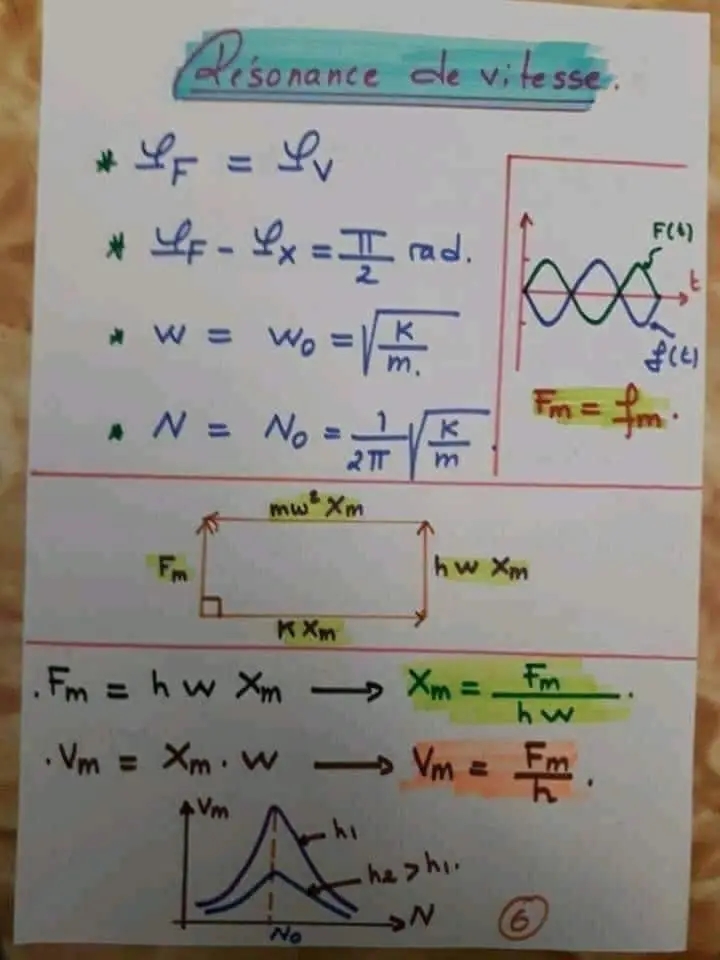 Résonance de vitesse.
* φF = φV
* φF - φx = π/2 rad.
* w = w₀ = √(K/m.)
* N = N₀ = 1/2π √(K/m).
F(t)
t
f(t)
Fm = fm.
mw² Xm
Fm
h w Xm
K Xm
. Fm = h w Xm → Xm = Fm/h w.
. Vm = Xm . w → Vm = Fm/h.
Vm
h₁
h₂ > h₁.
N
N₀
6